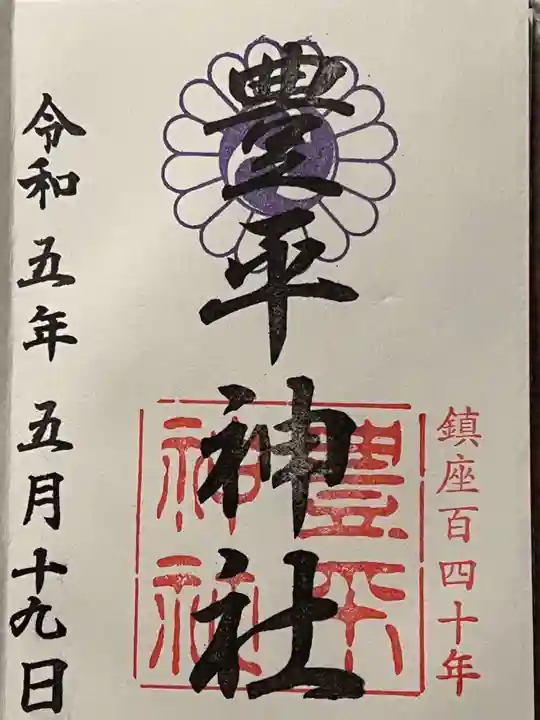 鎮座百四十年
豊平神社
豊平
神社
令和五年五月十九日